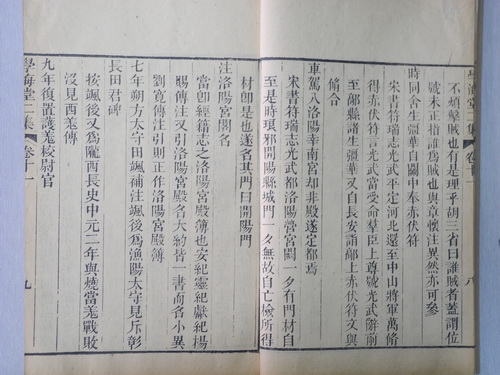 不煩擊賊也有是理乎胡三省曰誰賊者蓋謂位
號未正指誰爲賊也與章懷注異然亦可參
時同舍生彊華自關中奉赤伏符
宋書符瑞志光武平定河北還至中山將軍萬脩
得赤伏符言光武當受命羣臣上尊號光武辭前
至鄗縣諸生彊華又自長安詣鄗上赤伏符文與
脩合
車駕入洛陽幸南宮却非殿遂定都焉
宋書符瑞志光武都洛陽營宮闕一夕有門材自
至是時琅邪開陽縣城門一夕無故自亡檢所得
材卽是也遂名其門曰開陽門
注洛陽宮閣名
當卽經籍志之洛陽宮殿簿也安紀靈獻紀楊
賜傳注又引洛陽宮殿名大約皆一書而名小異
劉寬傳注引則正作洛陽宮殿簿
七年朔方太守田颯補注颯後爲漁陽太守見斥彰
長田君碑
按颯後又爲隴西長史中元二年與燒當羌戰敗
沒見西羌傳
九年復置護羌校尉官
學海堂二集 卷十一 九